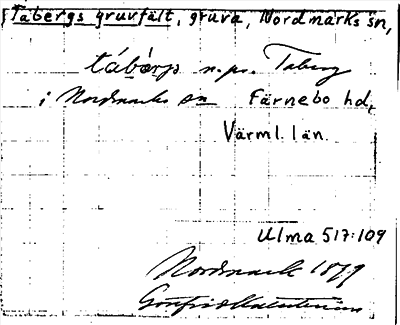 Tabergs gruvfält, gruva, Nordmarks sn,
tábärjs n. pr. Taberg
i Nordmarks sn Färnebo hd,
Värml. län.
Ulma 517:109
Nordmark 1879